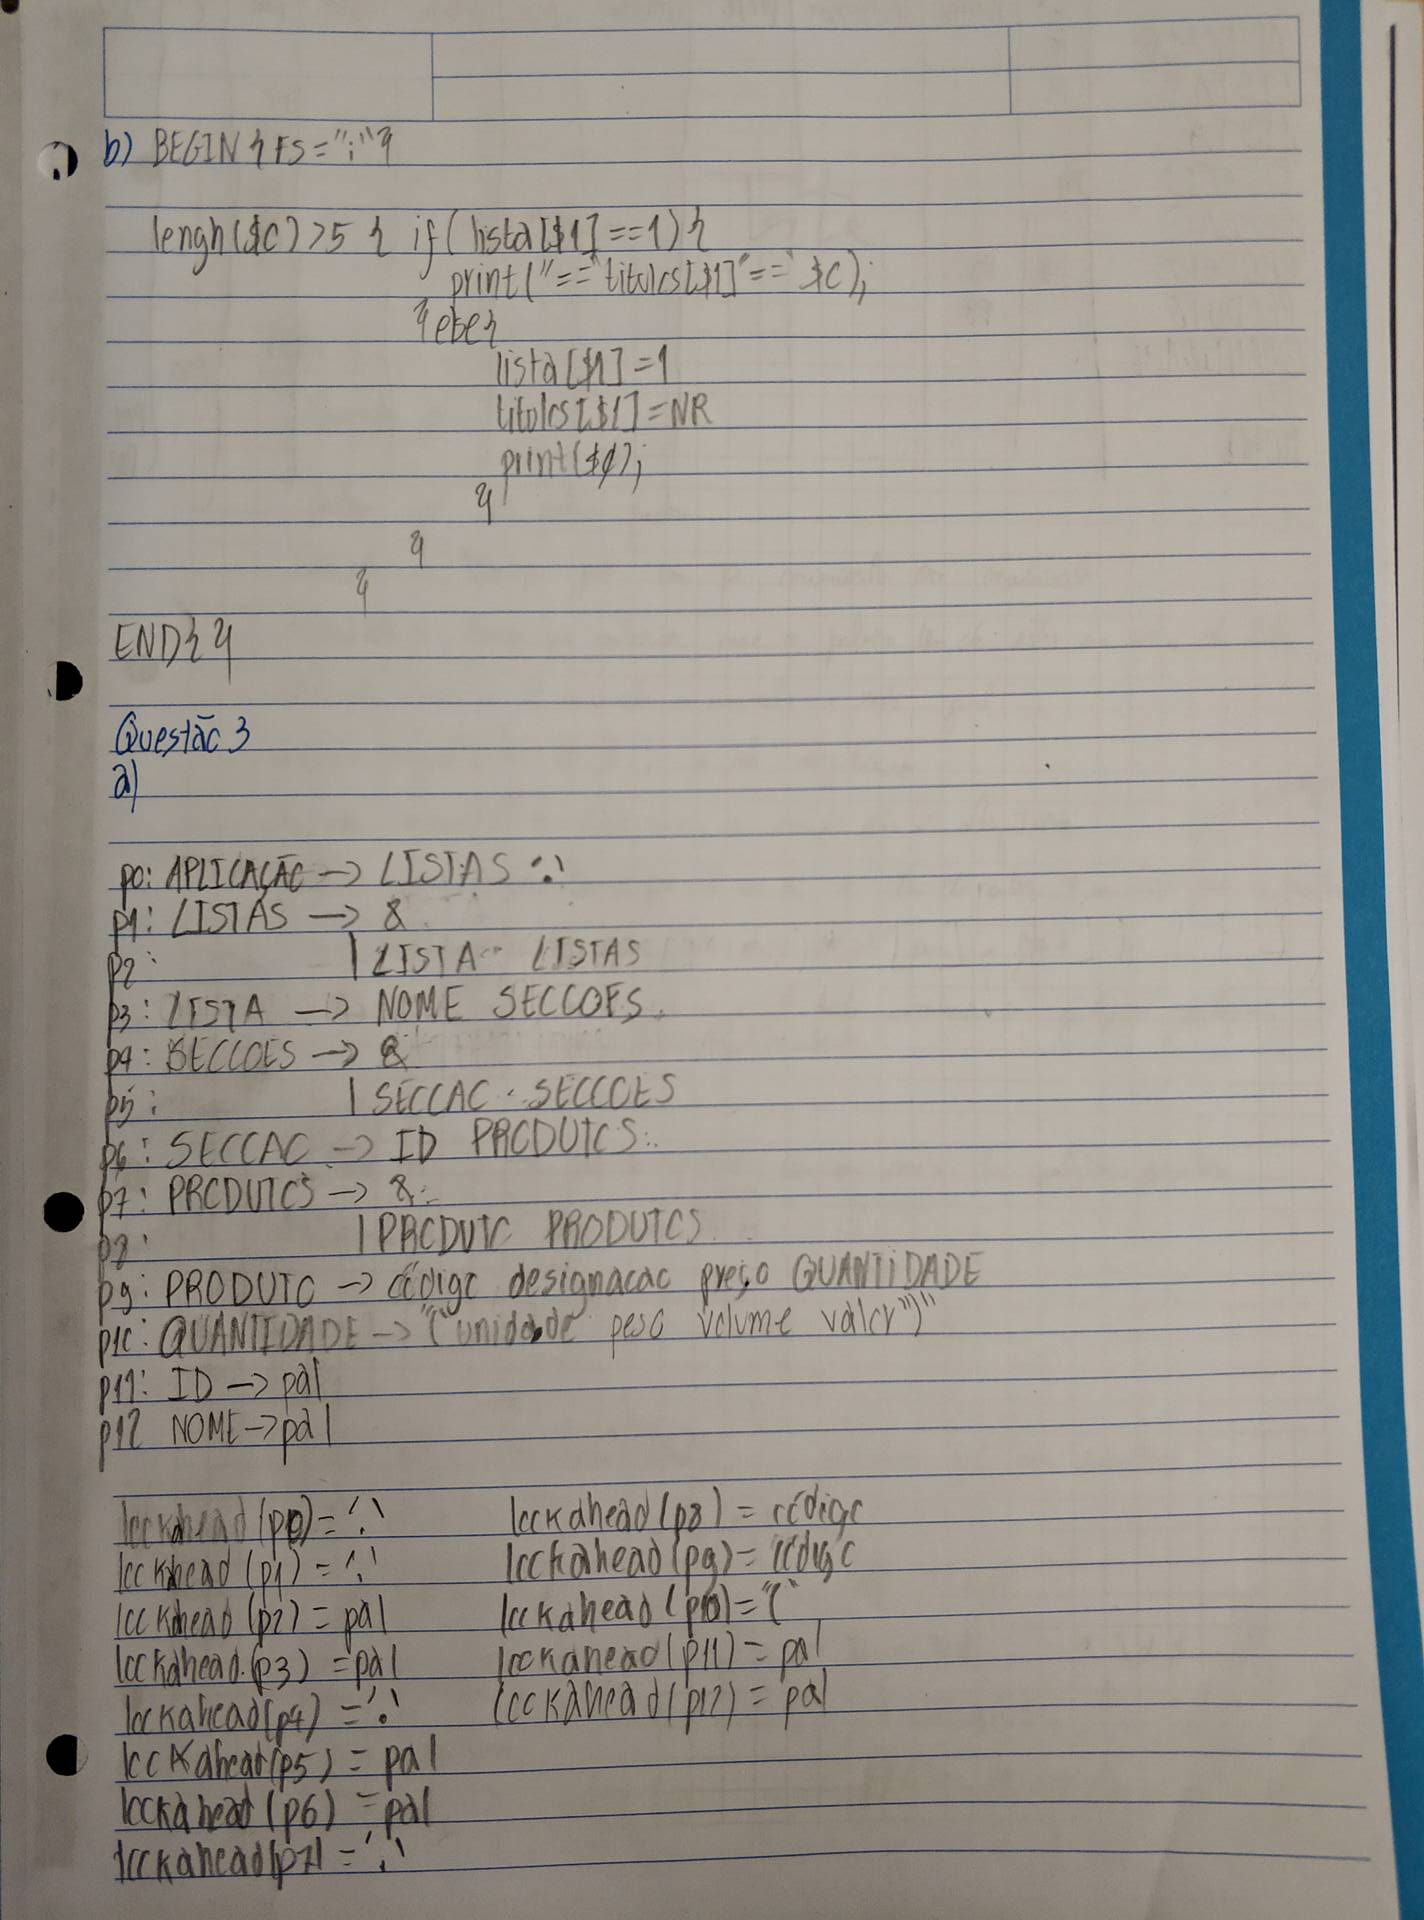 b) BEGIN{FS=";"}
lengh($0)>5 { if( lista[$1]==1){
print("=="titulos[$1]"==" $0);
}else{
lista[$1]=1
titulos[$1]=NR
print($0);
}
}
}
END{}
Questão 3
a)
p0: APLICAÇÃO -> LISTAS '.'
p1: LISTAS -> &
p2: | LISTA LISTAS
p3: LISTA -> NOME SECCOES
p4: SECCOES -> &
p5: | SECCAO SECCOES
p6: SECCAO -> ID PRODUTOS
p7: PRODUTOS -> &
p8: | PRODUTO PRODUTOS
p9: PRODUTO -> código designacao preço QUANTIDADE
p10: QUANTIDADE -> "(" unidade peso volume valor ")"
p11: ID -> pal
p12 NOME -> pal
lookahead (p0) = '.' lookahead (p8) = código
lookahead (p1) = '.' lookahead (p9) = código
lookahead (p2) = pal lookahead (p10) = "("
lookahead (p3) = pal lookahead (p11) = pal
lookahead (p4) = '.' lookahead (p12) = pal
lookahead (p5) = pal
lookahead (p6) = pal
lookahead (p7) = '.'